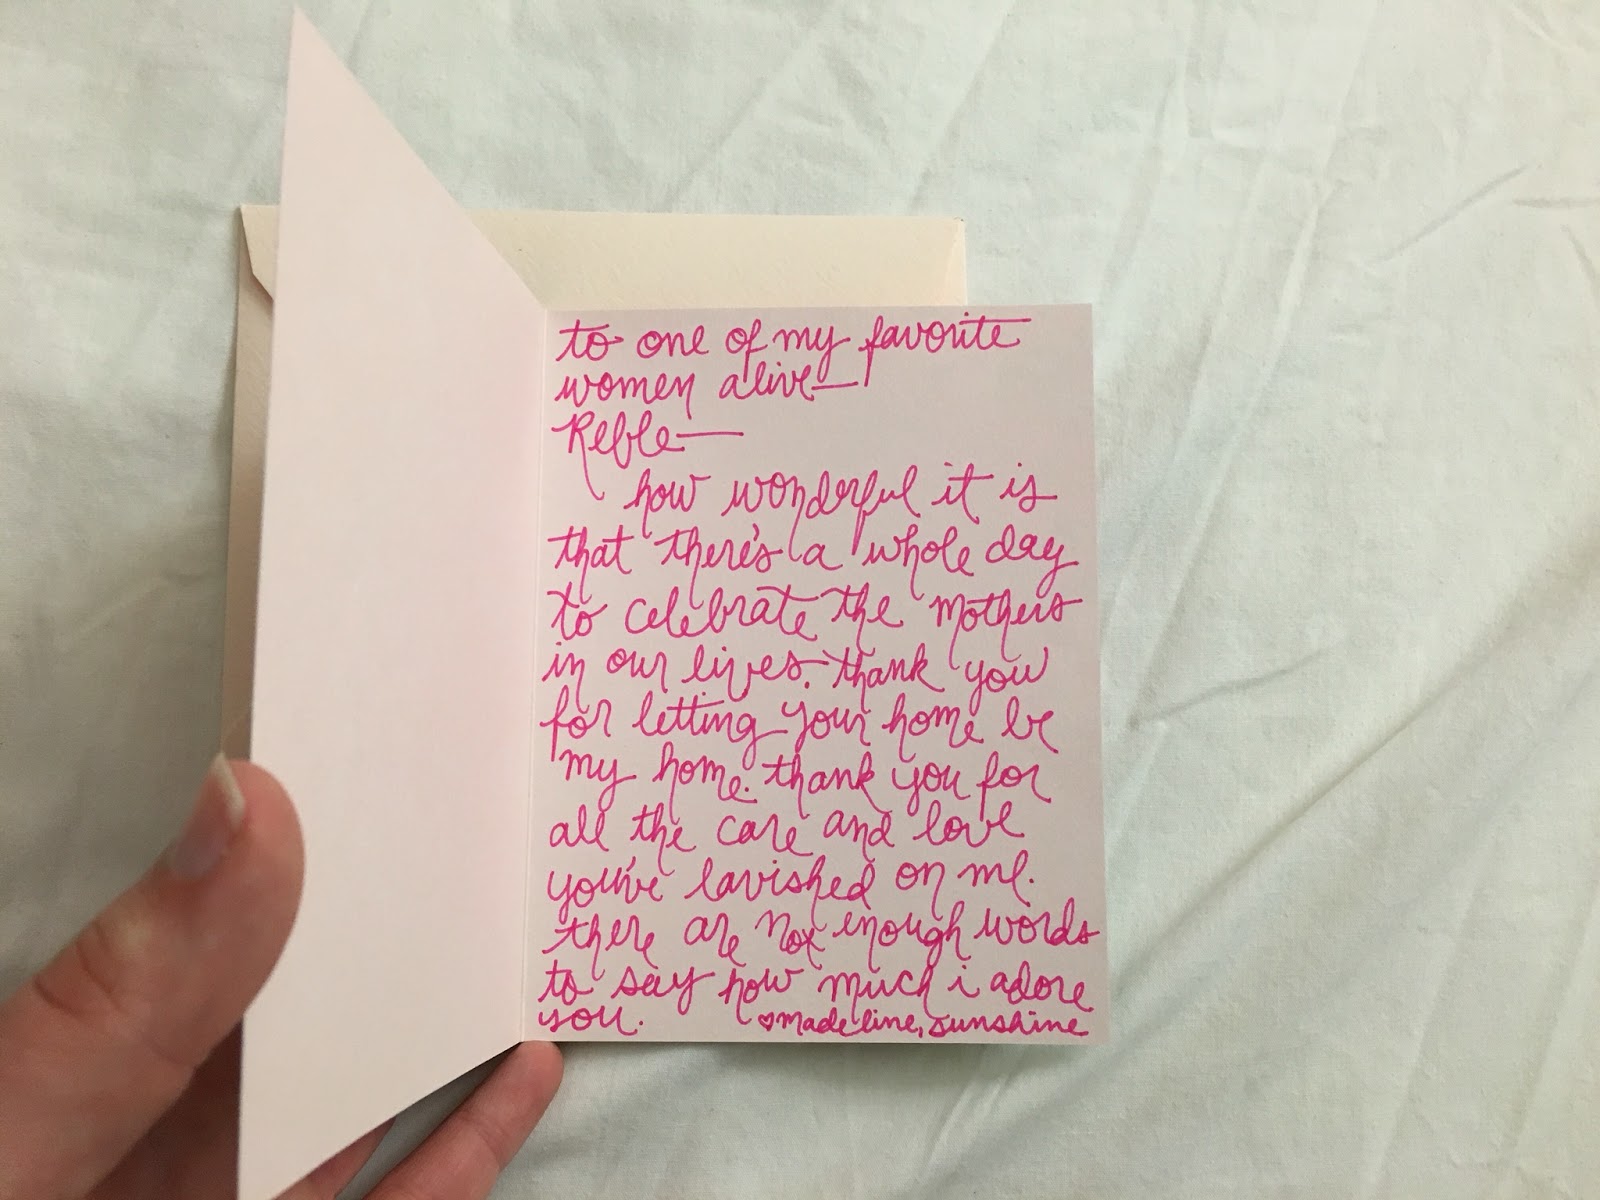 to one of my favorite
women alive—
Reble—
how wonderful it is
that there's a whole day
to celebrate the mothers
in our lives. thank you
for letting your home be
my home. thank you for
all the care and love
you've lavished on me.
there are not enough words
to say how much i adore
you. ♡madeline, sunshine